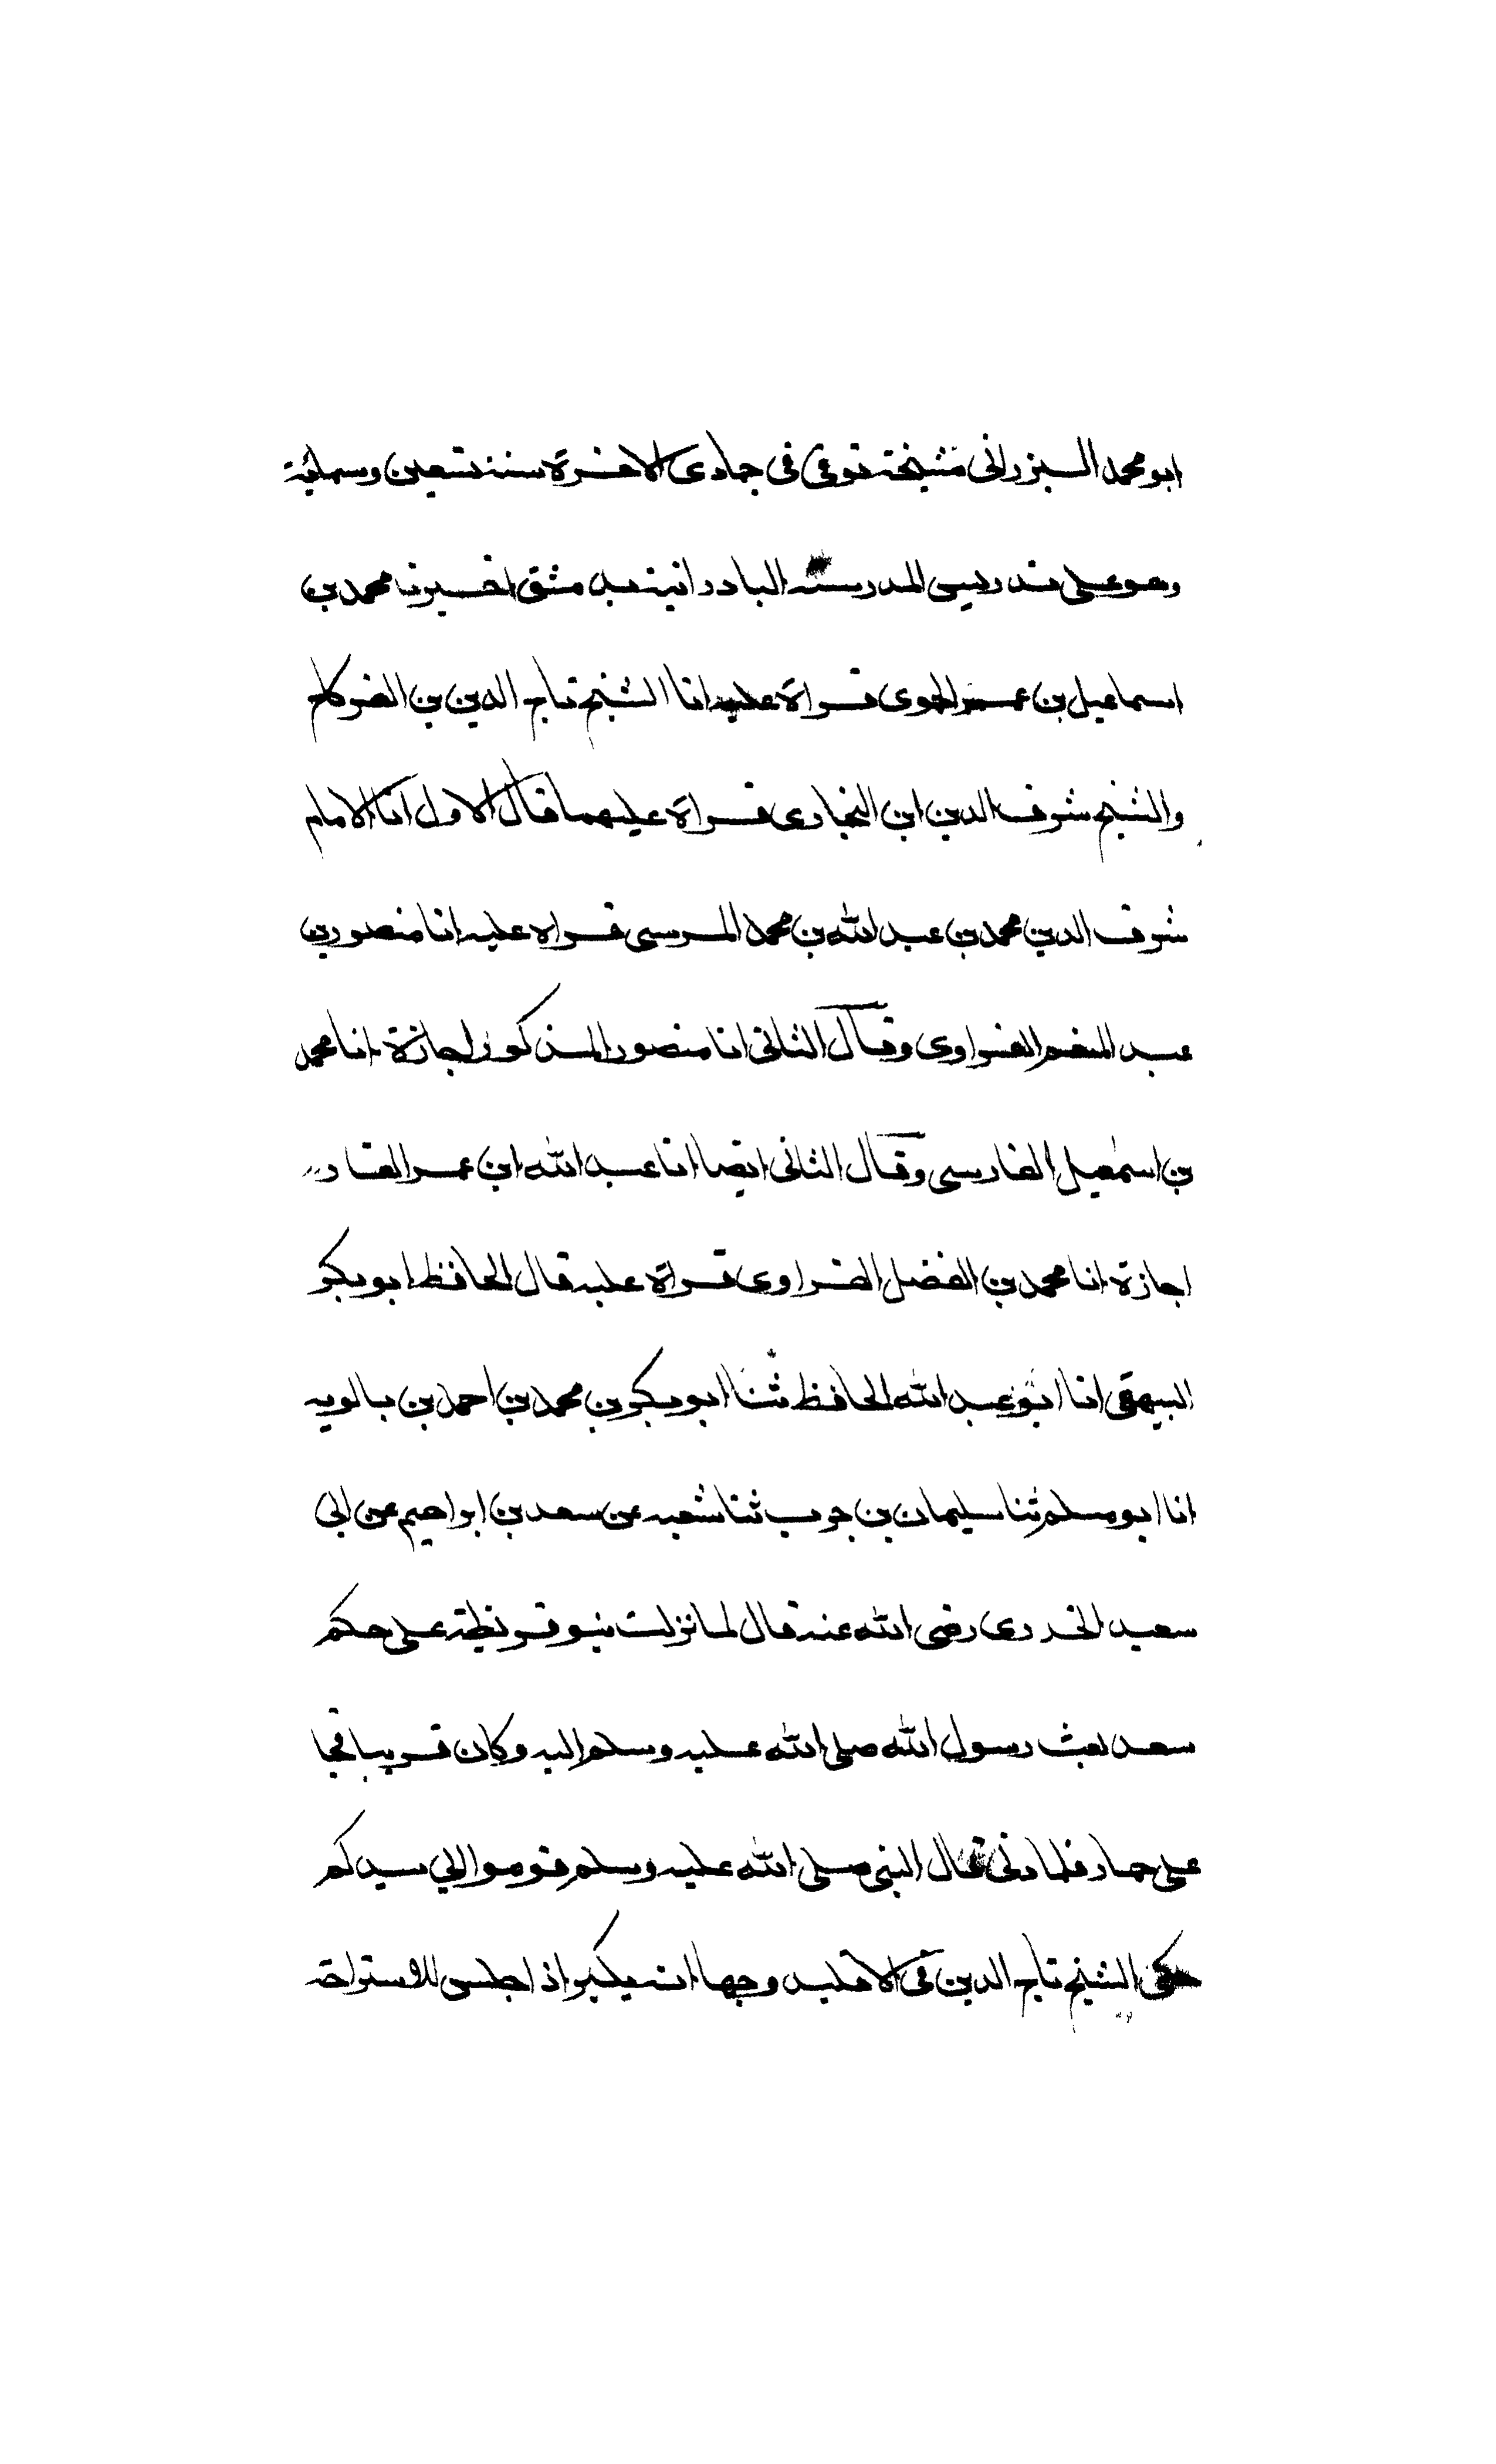 ابو محمد البرزالى مشيخة توفى فى جمادى الاخرة سنة تسعين وستمائة
وهو على تدريس المدرسة البادرانية بدمشق اخبرنا محمد بن
اسماعيل بن عمر الحموى قراة عليه انا الشيخ تاج الدين بن الفركاح
والشيخ شرف الدين ابن النجارى قراة عليهما قال الاول انا الامام
شرف الدين محمد بن عبد الله بن محمد المرسى قراه عليه انا منصور بن
عبد المنعم الفراوى وقال الثانى انا منصور المذكور اجازة انا محمد
بن اسمعيل الفارسى وقال الثانى ايضا انا عبد الله ابن عمر القادر
اجازة انا محمد بن الفضل الفراوى قراة عليه قال الحافظ ابو بكر
البيهقى انا ابو عبد الله الحافظ ثنا ابو بكر بن محمد بن احمد بن بالويه
انا ابو مسلم ثنا سليمان بن حرب ثنا شعبه عن سعد بن ابراهيم عن ابى
سعيد الخدرى رضى الله عنه قال لما نزلت بنو قريظة على حكم
سعد بعث رسول الله صلى الله عليه وسلم اليه وكان قريبا فجا
على حمار فلما دنى قال النبى صلى الله عليه وسلم قوموا الى سيدكم
حكى الشيخ تاج الدين فى الاقليد وجها انه يكبر اذا جلس للاستراحة